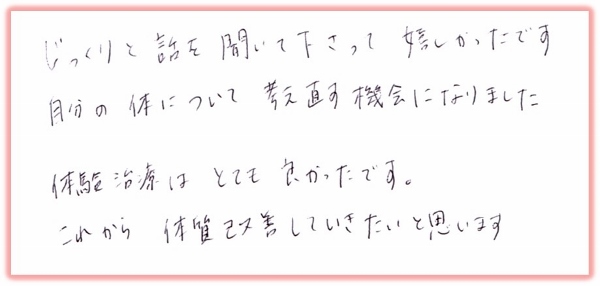 じっくりと話を聞いて下さって嬉しかったです
自分の体について考え直す機会になりました
体験治療はとても良かったです。
これから体質改善していきたいと思います